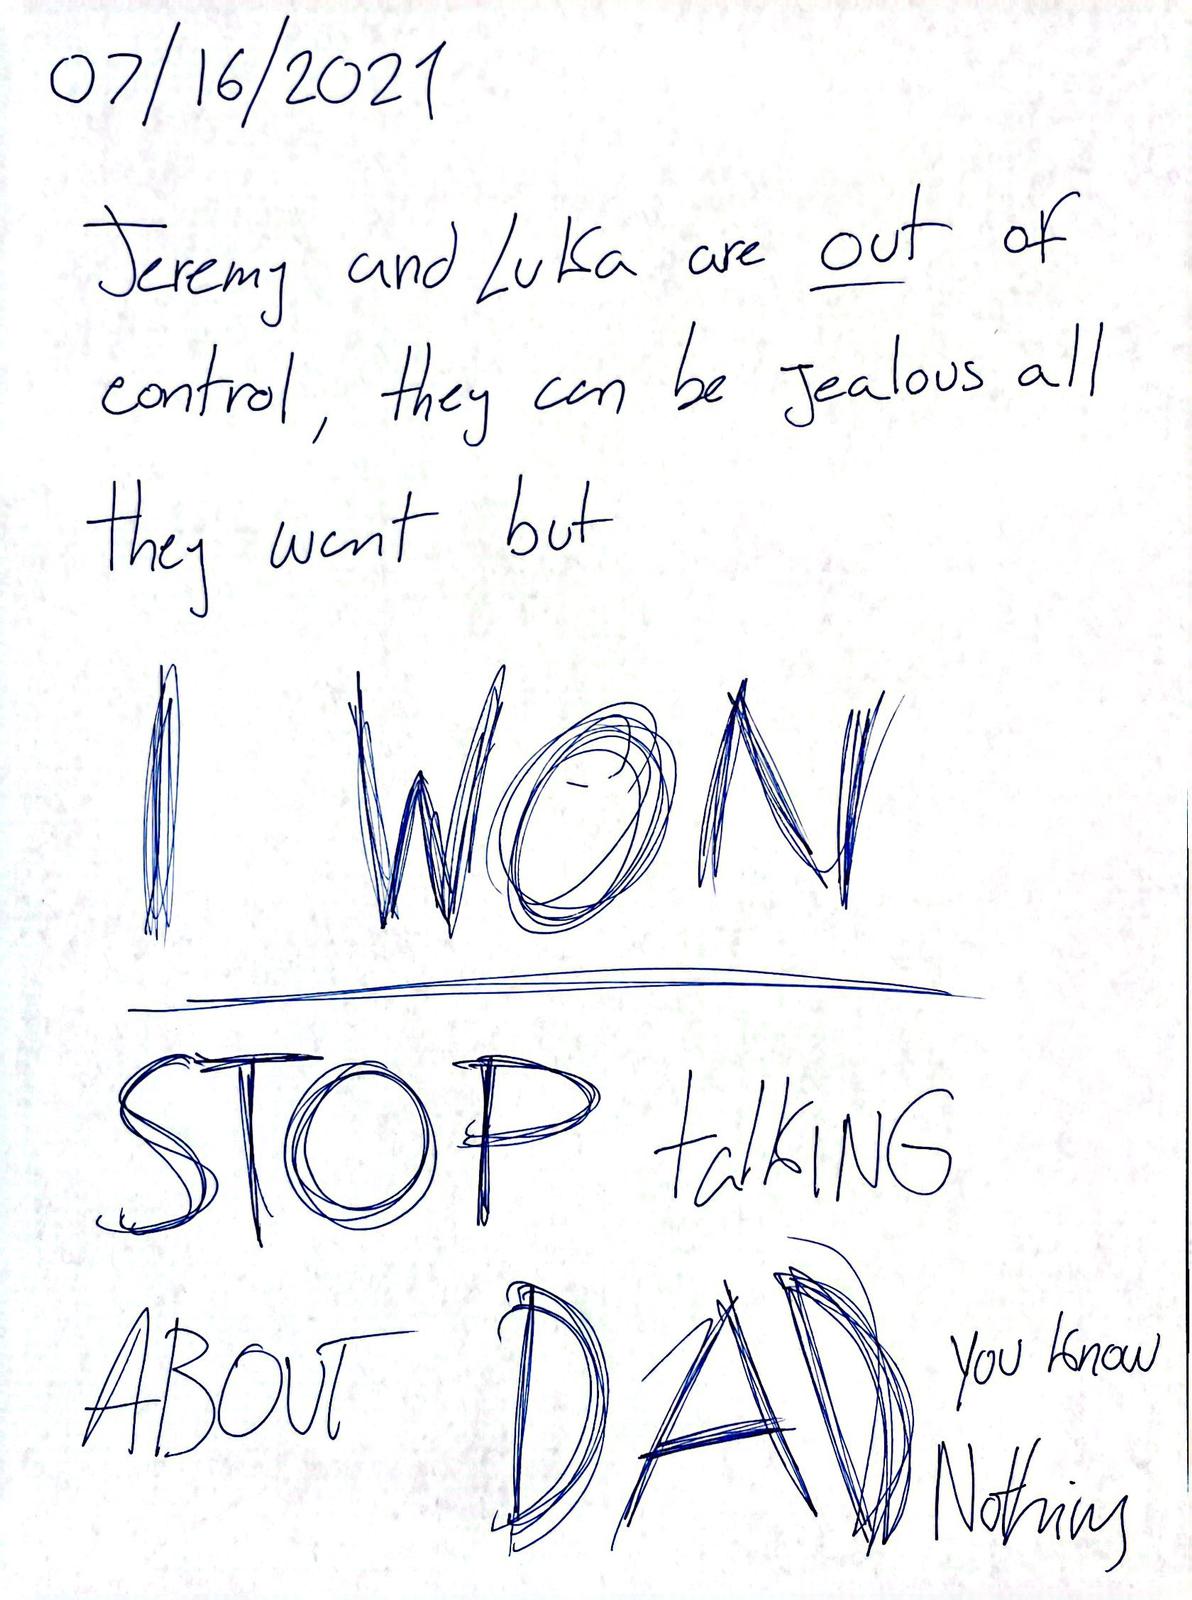 07/16/2021
Jeremy and Luka are out of
control, they can be jealous all
they want but
I WON
STOP talkING
ABOUT DAD you know
Nothing